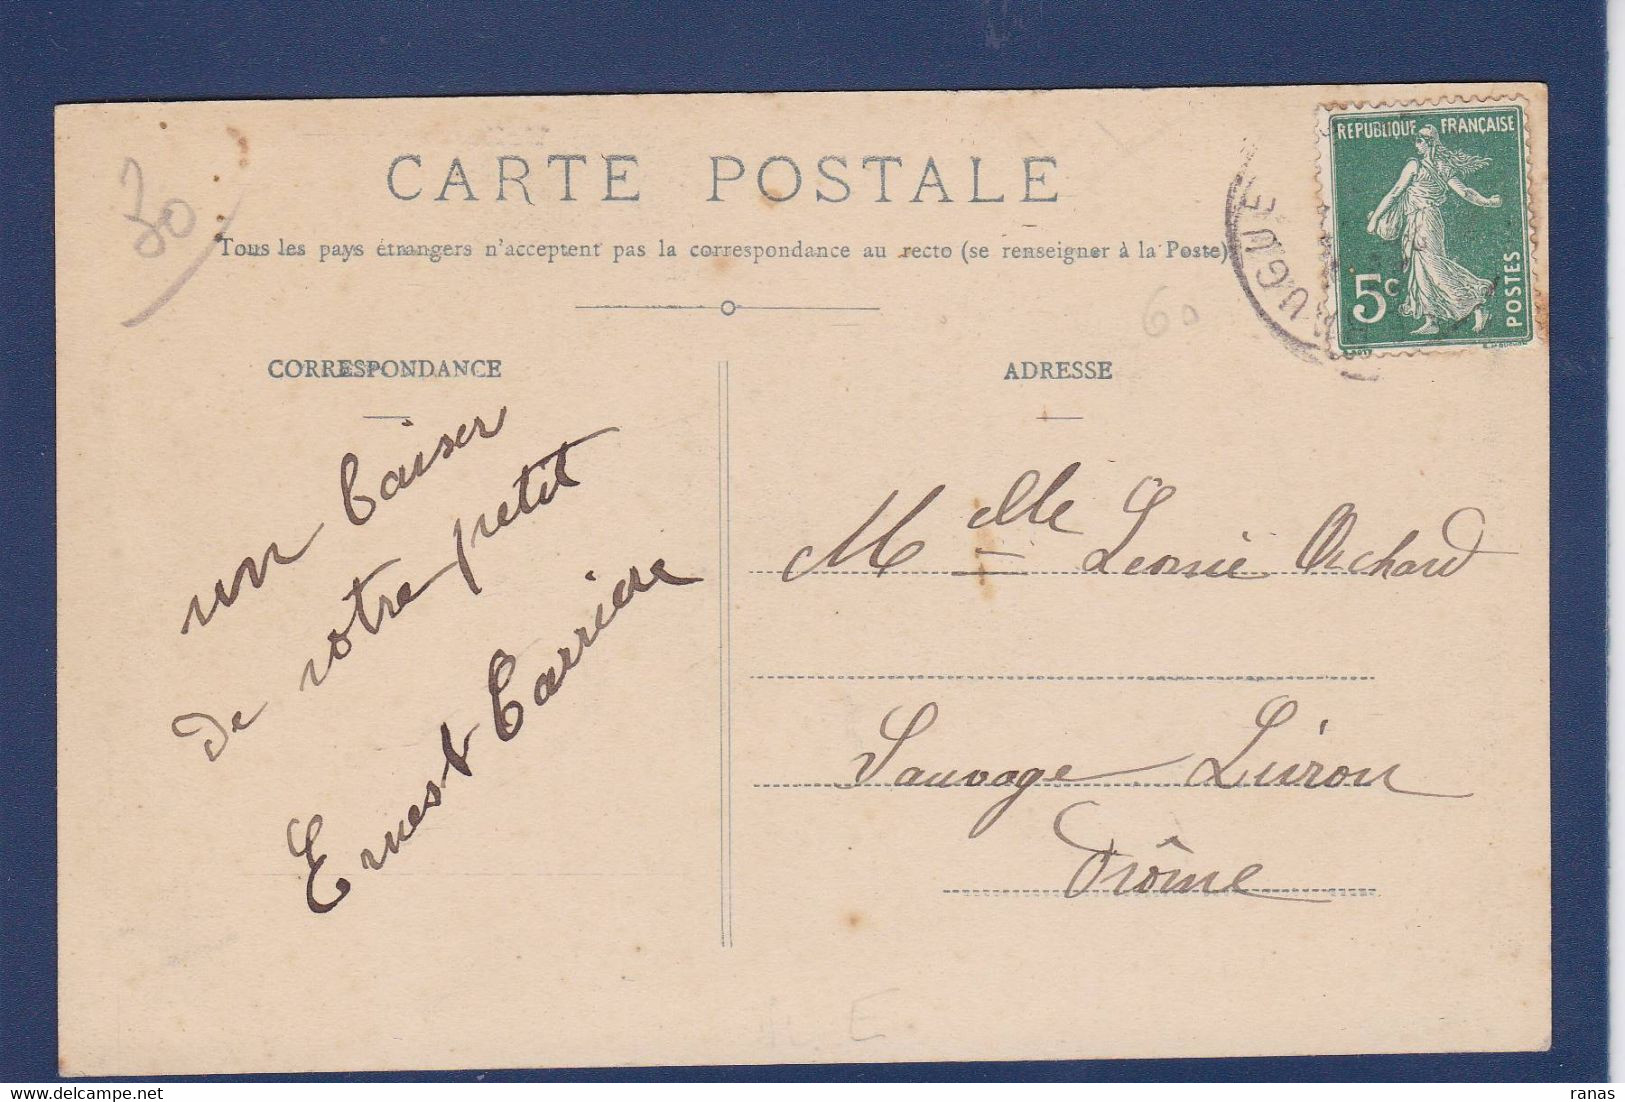 30
CARTE POSTALE
Tous les pays étrangers n'acceptent pas la correspondance au recto (se renseigner à la Poste)
60
CORRESPONDANCE
un baiser
de votre petit
Ernest Carriere
ADRESSE
Melle Leonie Orchard
Sauvage Livron
Drôme
REPUBLIQUE FRANÇAISE
5c
POSTES
UGUE
E
ranas